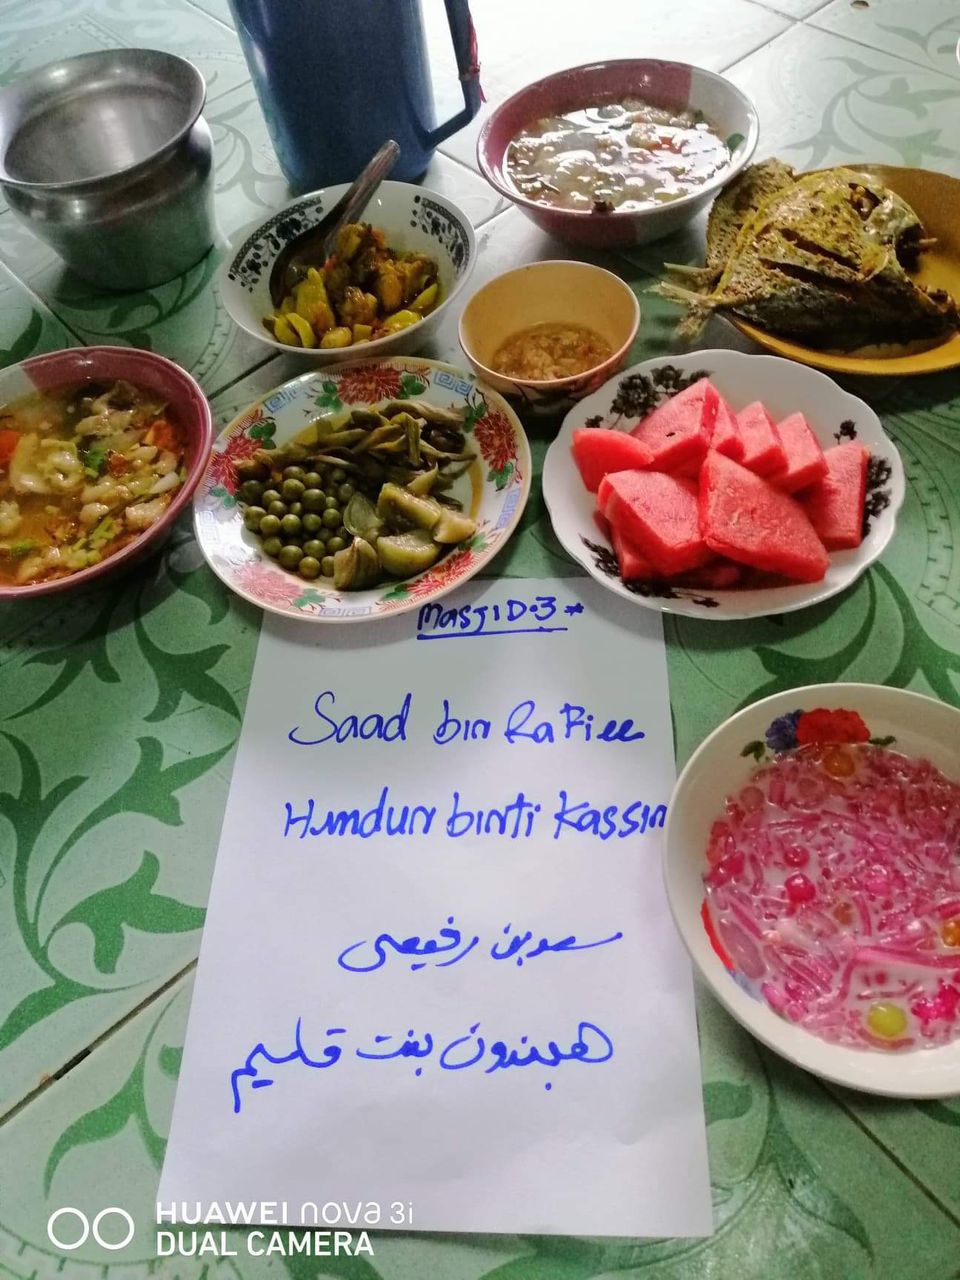 MasjID.3*
Saad bin RaFiee
Hmdun binti Kassim
سعد بن رفيعي
هيندون بنت قاسيم
HUAWEI nova 3i
DUAL CAMERA